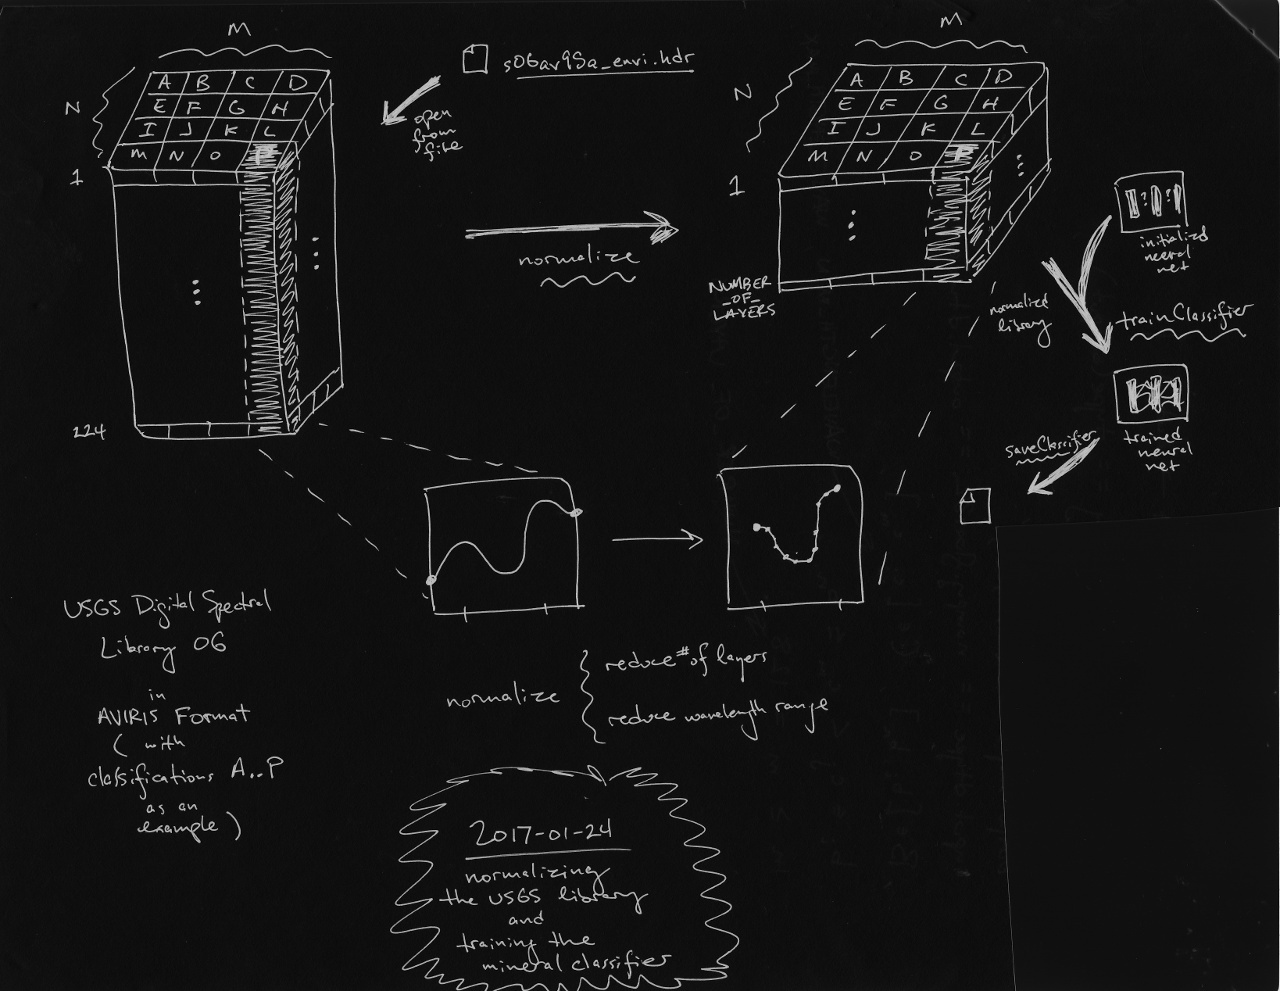 M
N
A B C D
E F G H
I J K L
M N O P
1
224
s06av95a_envi.hdr
open
from
file
normalize
M
N
A B C D
E F G H
I J K L
M N O P
1
NUMBER
_OF_
LAYERS
? ?
initialized
neural
net
normalized
library
trainClassifier
trained
neural
net
saveClassifier
USGS Digital Spectral
Library 06
in
AVIRIS Format
( with
classifications A..P
as an
example )
normalize
reduce # of layers
reduce wavelength range
2017-01-24
normalizing
the USGS library
and
training the
mineral classifier